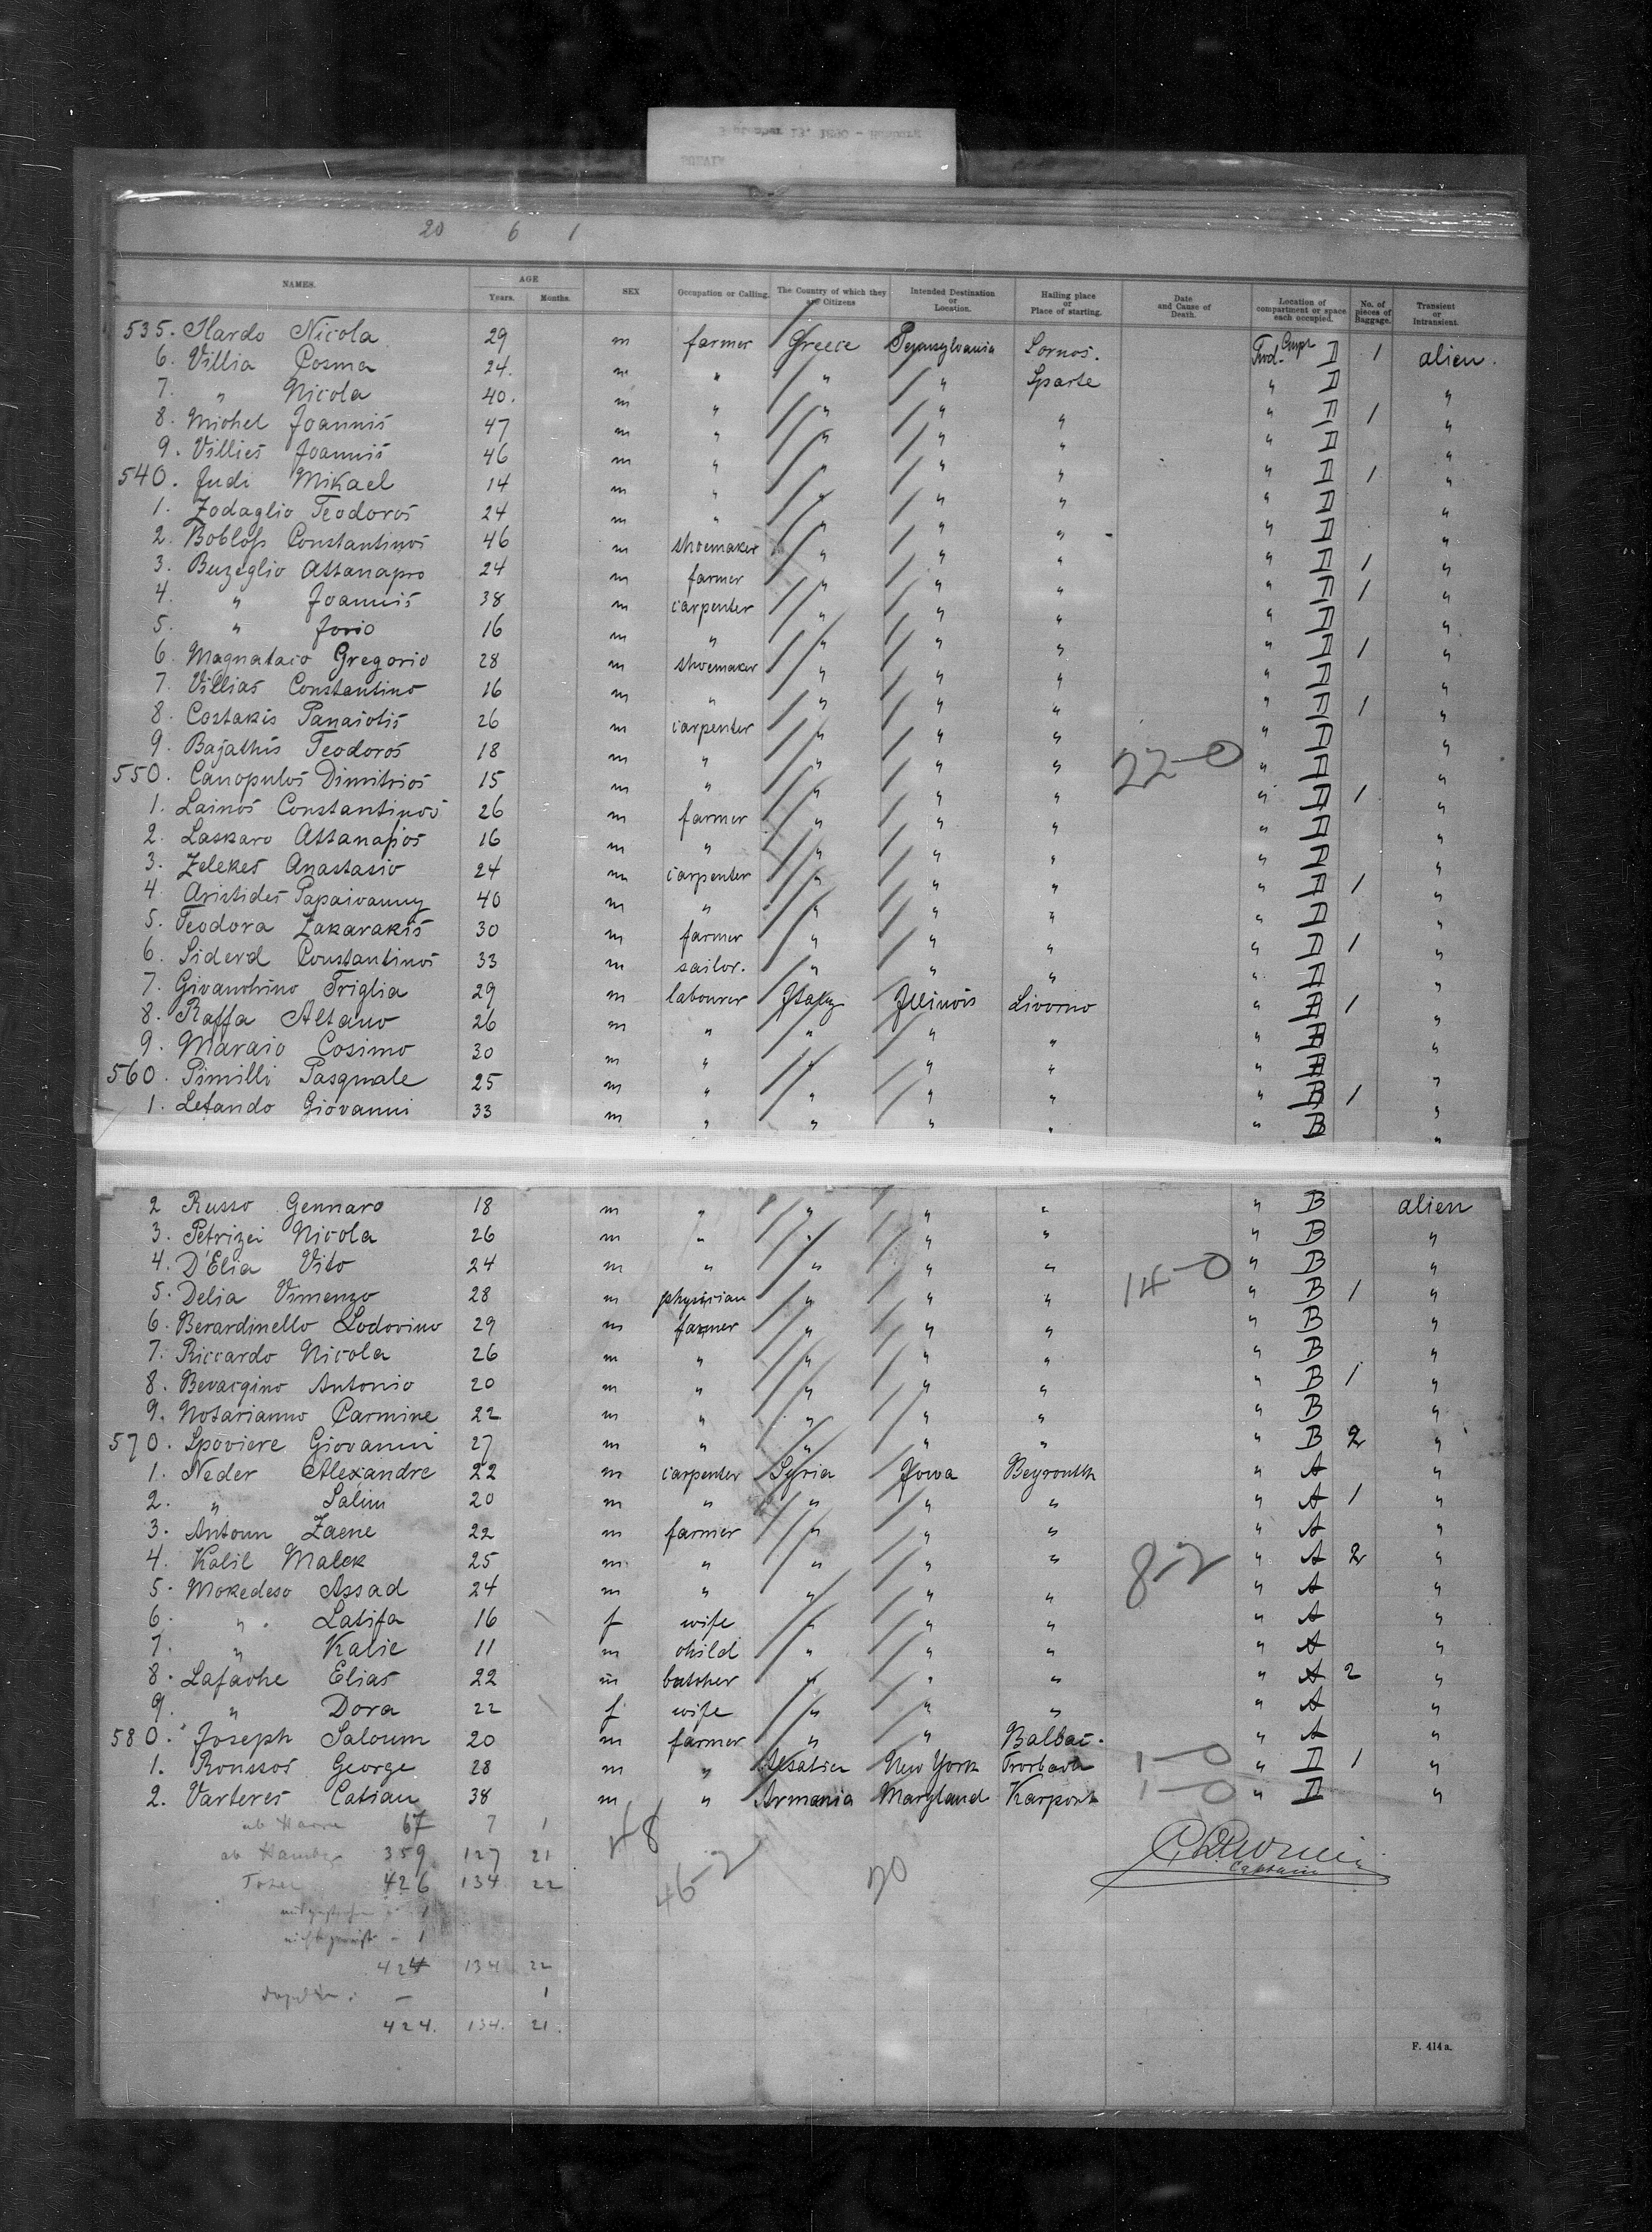 September 13, 1890 - Hamburg
BOHEMIA
20 6 1
NAMES. AGE SEX Occupation or Calling. The Country of which they are Citizens Intended Destination or Location. Hailing place or Place of starting. Date and Cause of Death. Location of compartment or space each occupied. No. of pieces of Baggage. Transient or Intransient.
Years. Months.
535. Ilardo Nicola 29 m farmer Greece Pennsylvania Lornos. Twd. Cmpt II 1 alien.
6. Villia Cosma 24. m " " " Sparte " A "
7. " Nicola 40. m " " " " " A 1 "
8. Michel Joannis 47 m " " " " " A "
9. Villies Joannis 46 m " " " " " A 1 "
540. Judi Mikael 14 m " " " " " A "
1. Zodaglio Teodoros 24 m " " " " " A "
2. Bobloss Constantinos 46 m shoemaker " " " " A 1 "
3. Buzeglio Attanapro 24 m farmer " " " " A 1 "
4. " Joannis 38 m carpenter " " " " A "
5. " Jorio 16 m " " " " " A 1 "
6. Magnataco Gregorio 28 m shoemaker " " " " A "
7. Villias Constantino 16 m " " " " " A 1 "
8. Costakis Panaiotis 26 m carpenter " " " " A "
9. Bajathis Teodoros 18 m " " " " 22-0 " A "
550. Canopulos Dimitrios 15 m " " " " " A 1 "
1. Lainos Constantinos 26 m farmer " " " " A "
2. Laskaro Attanapos 16 m " " " " " A "
3. Zelekes Anastasio 24 m carpenter " " " " A 1 "
4. Aristides Papaivanny 40 m " " " " " A "
5. Teodora Zakarakis 30 m farmer " " " " A 1 "
6. Siderd Constantinos 33 m sailor. " " " " A "
7. Givanohino Triglia 29 m labourer Italy Illinois Livorno " A 1 "
8. Raffa Altano 26 m " " " " " A "
9. Maraio Cosimo 30 m " " " " " A "
560. Pimilli Pasquale 25 m " " " " " B 1 "
1. Letando Giovanni 33 m " " " " " B "
2 Russo Gennaro 18 m " " " " " B alien
3. Petrizei Nicola 26 m " " " " " B "
4. D'Elia Vito 24 m " " " " 14-0 " B "
5. Delia Vimenzo 28 m physician " " " " B 1 "
6. Berardinello Lodovino 29 m farmer " " " " B "
7. Riccardo Nicola 26 m " " " " " B "
8. Bevacgino Antonio 20 m " " " " " B 1 "
9. Notarianno Carmine 22 m " " " " " B "
570. Spoviere Giovanni 27 m " " " " " B 2 "
1. Neder Alexandre 22 m carpenter Syria Jowa Beyrouth " A "
2. " Salim 20 m " " " " " A 1 "
3. Antoun Zaene 22 m farmer " " " " A "
4. Kalil Malek 25 m " " " " 8-2 " A 2 "
5. Mokedeso Assad 24 m " " " " " A "
6. " Latifa 16 f wife " " " " A "
7. " Kalie 11 m child " " " " A "
8. Lafache Elias 22 m butcher " " " " A 2 "
9. " Dora 22 f wife " " " " A "
580. Joseph Saloum 20 m farmer " " Balbai. " A "
1. Roussos George 28 m " Alsatia New York Trorbach 1-0 " II 1 "
2. Varteres Catian 38 m " Armania Maryland Karpont 1-0 " II "
ab Havre 67 7 1 48
ab Hamburg 359 127 21 46-2 20
426 134 22
Captain
1
1
424 134 22
- 1
424. 134. 21.
F. 414 a.